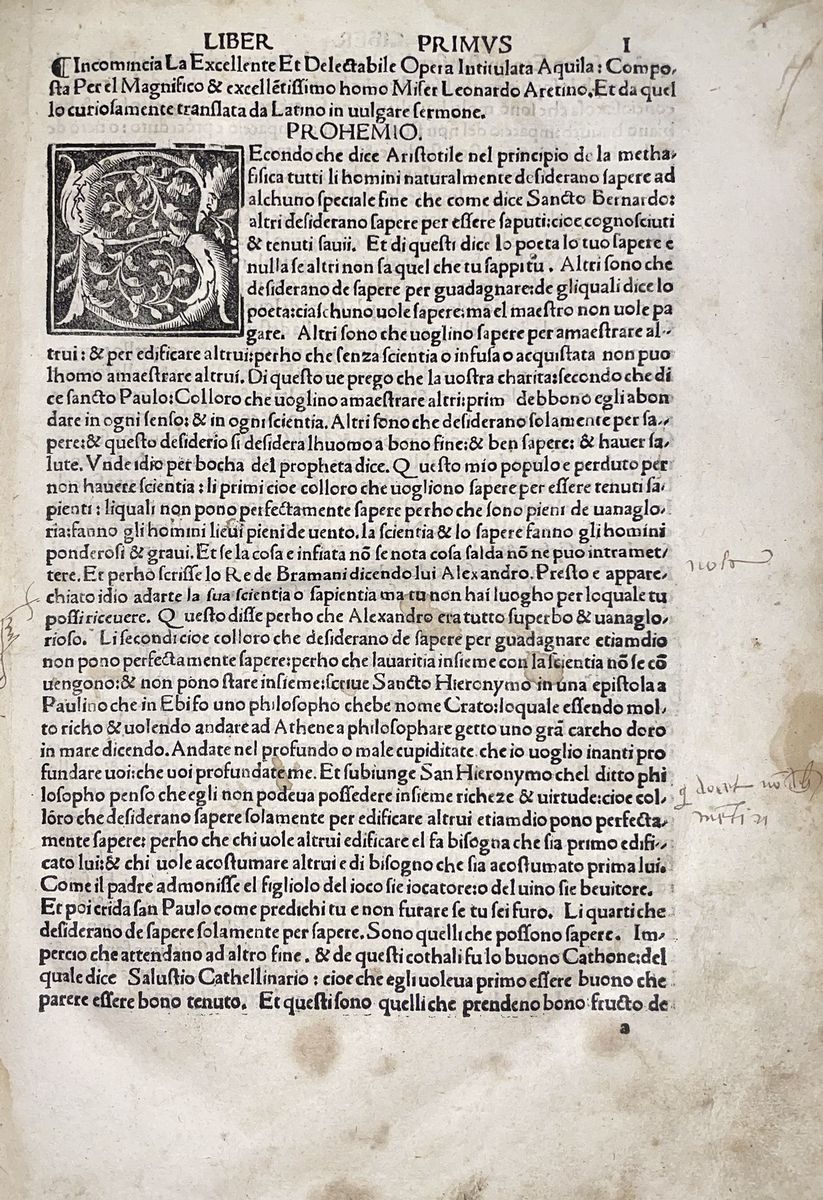 LIBER PRIMVS I
¶ Incomincia La Excellente Et Delectabile Opera Intitulata Aquila: Compo-
sta Per el Magnifico & excellētissimo homo Miser Leonardo Aretino, Et da quel
lo curiosamente translata da Latino in uulgare sermone.
PROHEMIO.
SEcondo che dice Aristotile nel principio de la metha-
fisica tutti li homini naturalmente desiderano sapere ad
alchuno speciale fine che come dice Sancto Bernardo:
altri desiderano sapere per essere saputi: cioe cognosciuti
& tenuti sauii. Et di questi dice lo poeta lo tuo sapere e
nulla se altri non sa quel che tu sappi tu. Altri sono che
desiderano de sapere per guadagnare: de gliquali dice lo
poeta: ciaschuno uole sapere: ma el maestro non uole pa
gare. Altri sono che uoglino sapere per amaestrare al-
trui: & per edificare altrui: perho che senza scientia o infusa o acquistata non puo
lhomo amaestrare altrui. Di questo ue prego che la uostra charita: secondo che di
ce sancto Paulo: Colloro che uoglino amaestrare altri: prim debbono egli abon
dare in ogni senso: & in ogni scientia. Altri sono che desiderano solamente per sa-
pere: & questo desiderio si desidera lhuomo a bono fine: & ben sapere: & hauer sa-
lute. Vnde idio per bocha del propheta dice. Questo mio populo e perduto per
non hauere scientia: li primi cioe colloro che uogliono sapere per essere tenuti sa-
pienti: liquali non pono perfectamente sapere perho che sono pieni de uanaglo-
ria: fanno gli homini lieui pieni de uento. la scientia & lo sapere fanno gli homini
ponderosi & graui. Et se la cosa e infiata nō se nota cosa salda nō ne puo intramet-
tere. Et perho scrisse lo Re de Bramani dicendo lui Alexandro. Presto e appare-
chiato idio adarte la sua scientia o sapientia ma tu non hai luogho per loquale tu
possi riceuere. Questo disse perho che Alexandro era tutto superbo & uanaglo-
rioso. Li secondi cioe colloro che desiderano de sapere per guadagnare etiamdio
non pono perfectamente sapere: perho che lauaritia insieme con la scientia nō se cō
uengono: & non pono stare insieme: scriue Sancto Hieronymo in una epistola a
Paulino che in Ebifo uno philosopho chebe nome Crato: loquale essendo mol-
to richo & uolendo andare ad Athene a philosophare getto uno grā carcho doro
in mare dicendo. Andate nel profundo o male cupiditate che io uoglio inanti pro
fundare uoi: che uoi profundate me. Et subiunge San Hieronymo chel ditto phi
losopho penso che egli non podeua possedere insieme richeze & uirtude: cioe col-
lōro che desiderano sapere solamente per edificare altrui etiamdio pono perfecta-
mente sapere: perho che chi uole altrui edificare el fa bisogna che sia primo edifi-
cato lui: & chi uole acostumare altrui e di bisogno che sia acostumato prima lui.
Come il padre admonisse el figliolo del ioco sie iocatore: o del uino sie beuitore.
Et poi crida san Paulo come predichi tu e non furare se tu sei furo. Li quarti che
desiderano de sapere solamente per sapere. Sono quelli che possono sapere. Im-
percio che attendano ad altro fine. & de questi cothali fu lo buono Cathone: del
quale dice Salustio Cathellinario: cioe che egli uoleua primo essere buono che
parere essere bono tenuto. Et questi sono quelli che prendeno bono fructo de
a